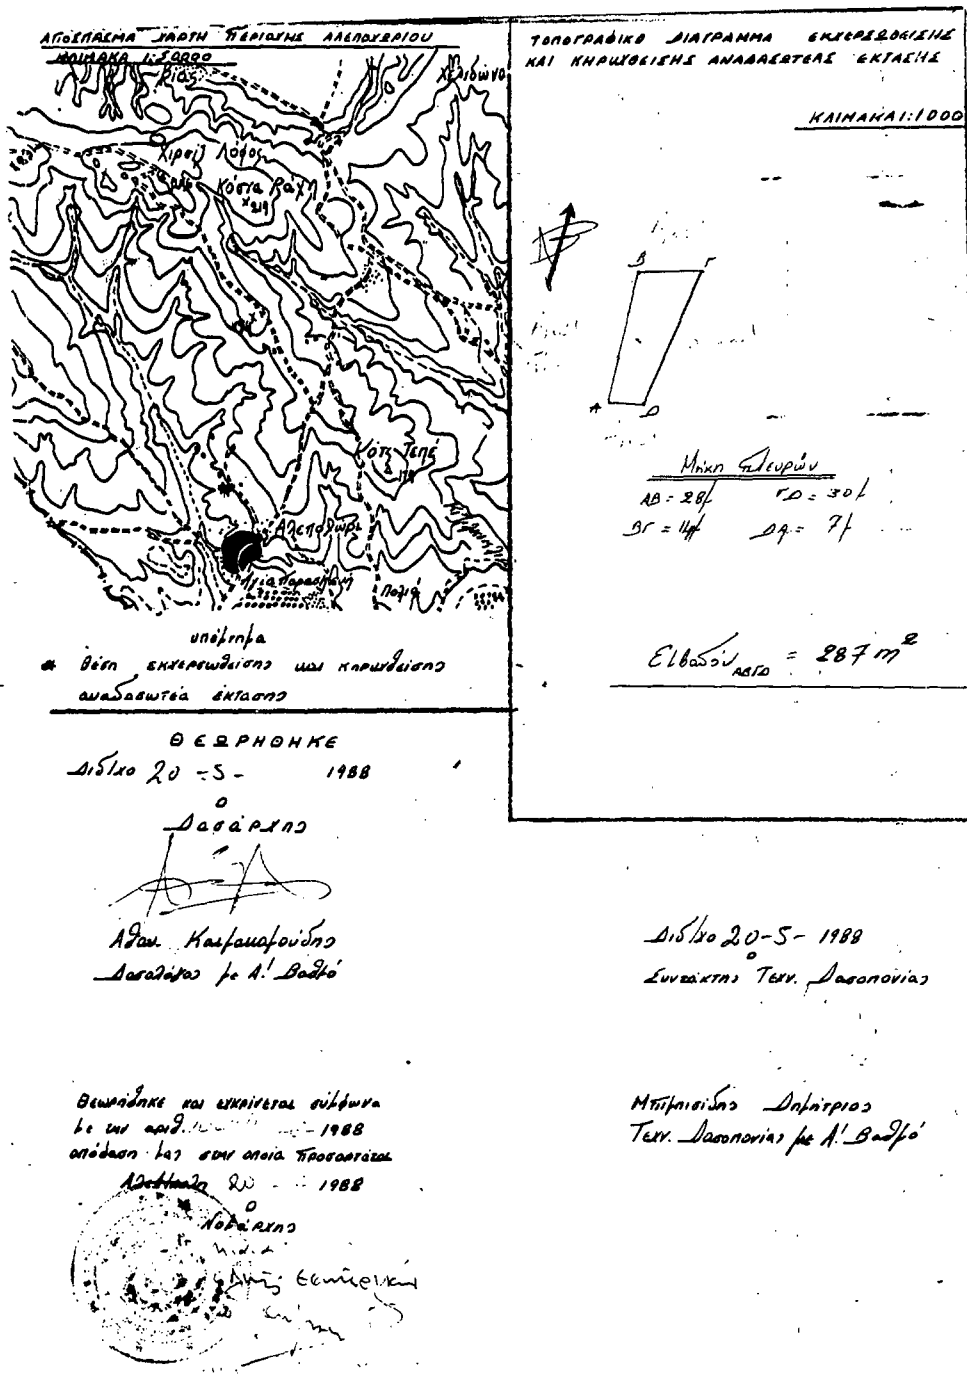 ΑΠΟΣΠΑΣΜΑ ΧΑΡΤΗ ΠΕΡΙΟΧΗΣ ΑΛΕΠΟΧΩΡΙΟΥ
ΚΛΙΜΑΚΑ 1:50000
Χελιδώνα
Χιρσίζ Λόφος
Κόστα Ράχη
219
Κότζ Τεπέ
Αλεποχώρι
Αγία Παρασκευή
Παλιά
υπόμνημα
* θέση εκχερσωθείσης και κηρυχθείσης
αναδασωτέα έκτασης
ΤΟΠΟΓΡΑΦΙΚΟ ΔΙΑΓΡΑΜΜΑ ΕΚΧΕΡΣΩΘΕΙΣΗΣ
ΚΑΙ ΚΗΡΥΧΘΕΙΣΗΣ ΑΝΑΔΑΣΩΤΕΑΣ ΕΚΤΑΣΗΣ
ΚΛΙΜΑΚΑ 1:1000
Β Γ
Α Δ
Μήκη Πλευρών
ΑΒ = 28μ ΓΔ = 30μ
ΒΓ = 14μ ΔΑ = 7μ
Εμβαδόν ΑΒΓΔ = 287 m²
ΘΕΩΡΗΘΗΚΕ
Διδ/χο 20-5- 1988
Ο
Δασάρχης
Αθαν. Καϊμακαμούδης
Δασολόγος με Α! Βαθμό
Διδ/χο 20-5- 1988
Ο
Συντάκτης Τεχν. Δασοπονίας
Δημήτριος
Τεχν. Δασοπονίας με Α! Βαθμό
Θεωρήθηκε και εγκρίνεται σύμφωνα
με την αριθ. 1988
απόφαση μας στην οποία προσαρτάται
Αλεξ/πολη 20 1988
Ο
Νομάρχης